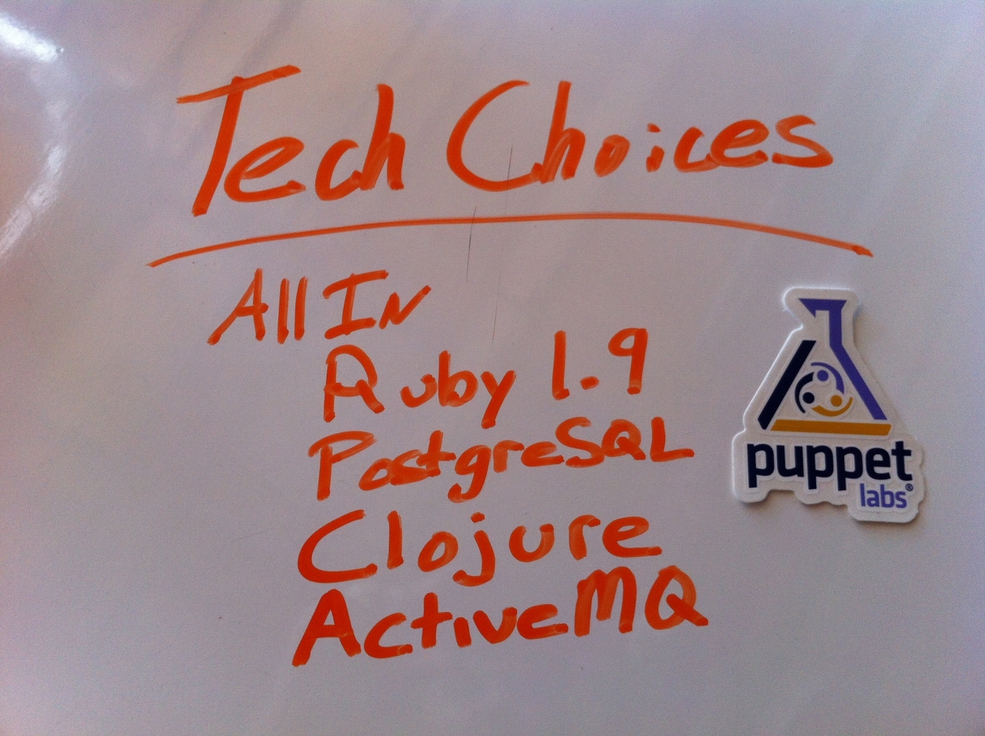 Tech Choices
All In
Ruby 1.9
PostgreSQL
Clojure
ActiveMQ
puppet
labs®